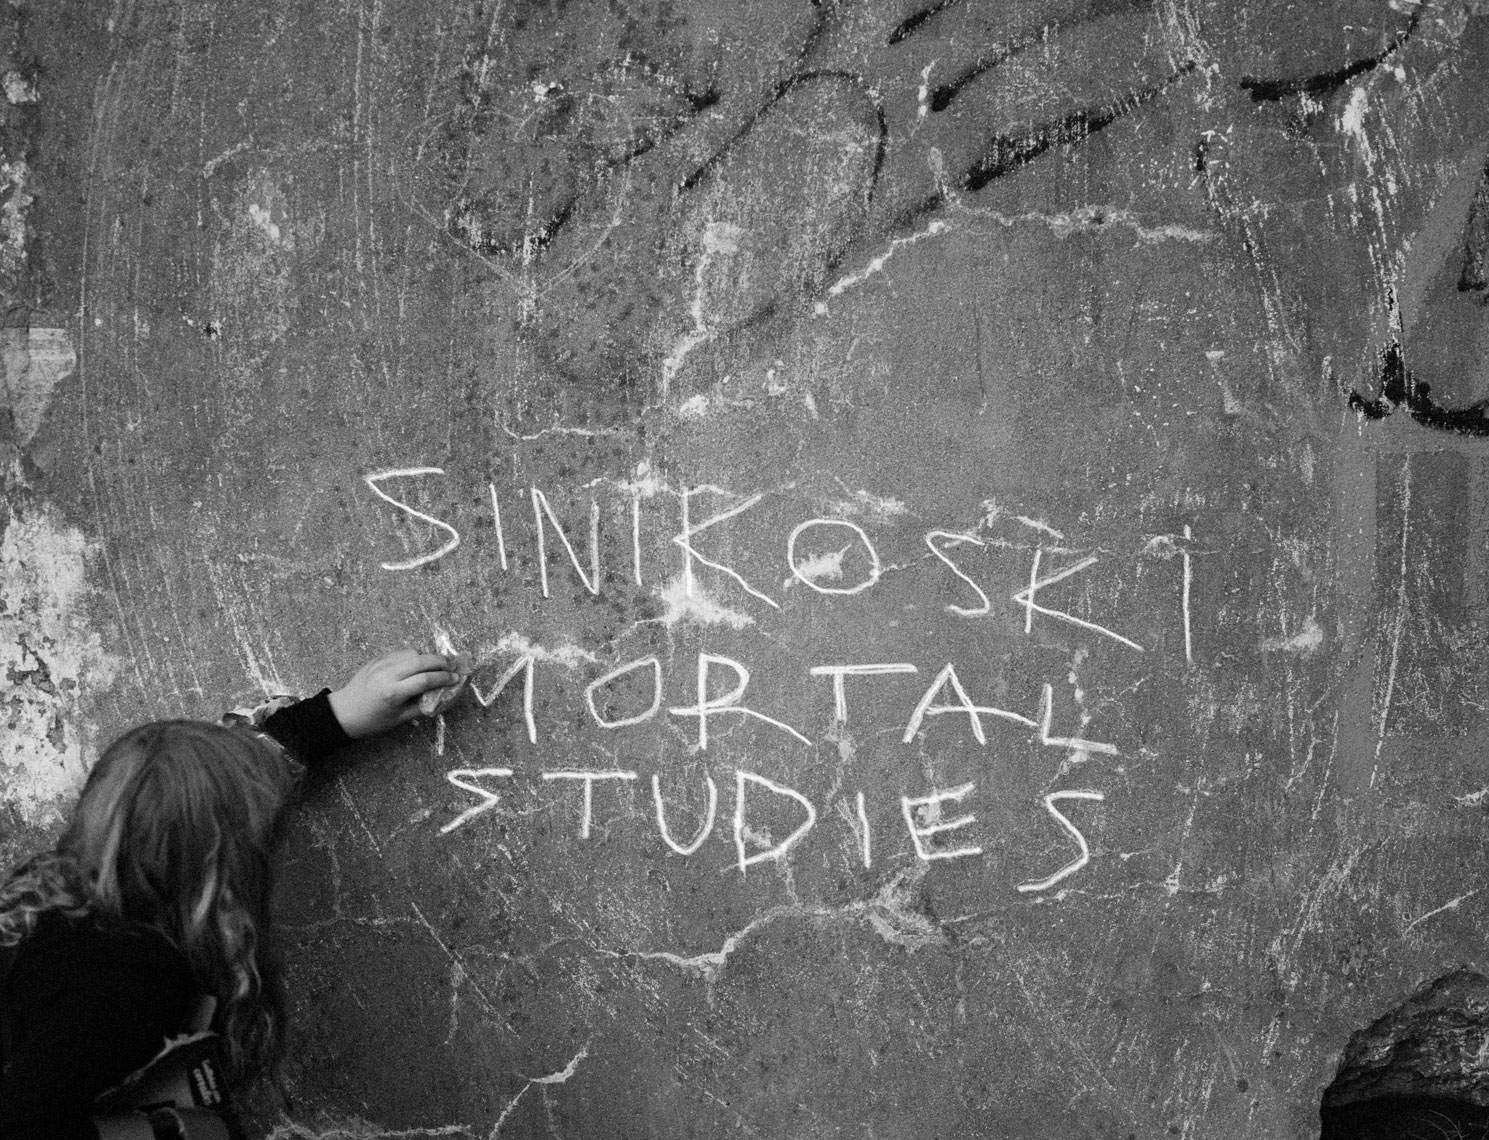 SINIKOSKI
MORTAL
STUDIES